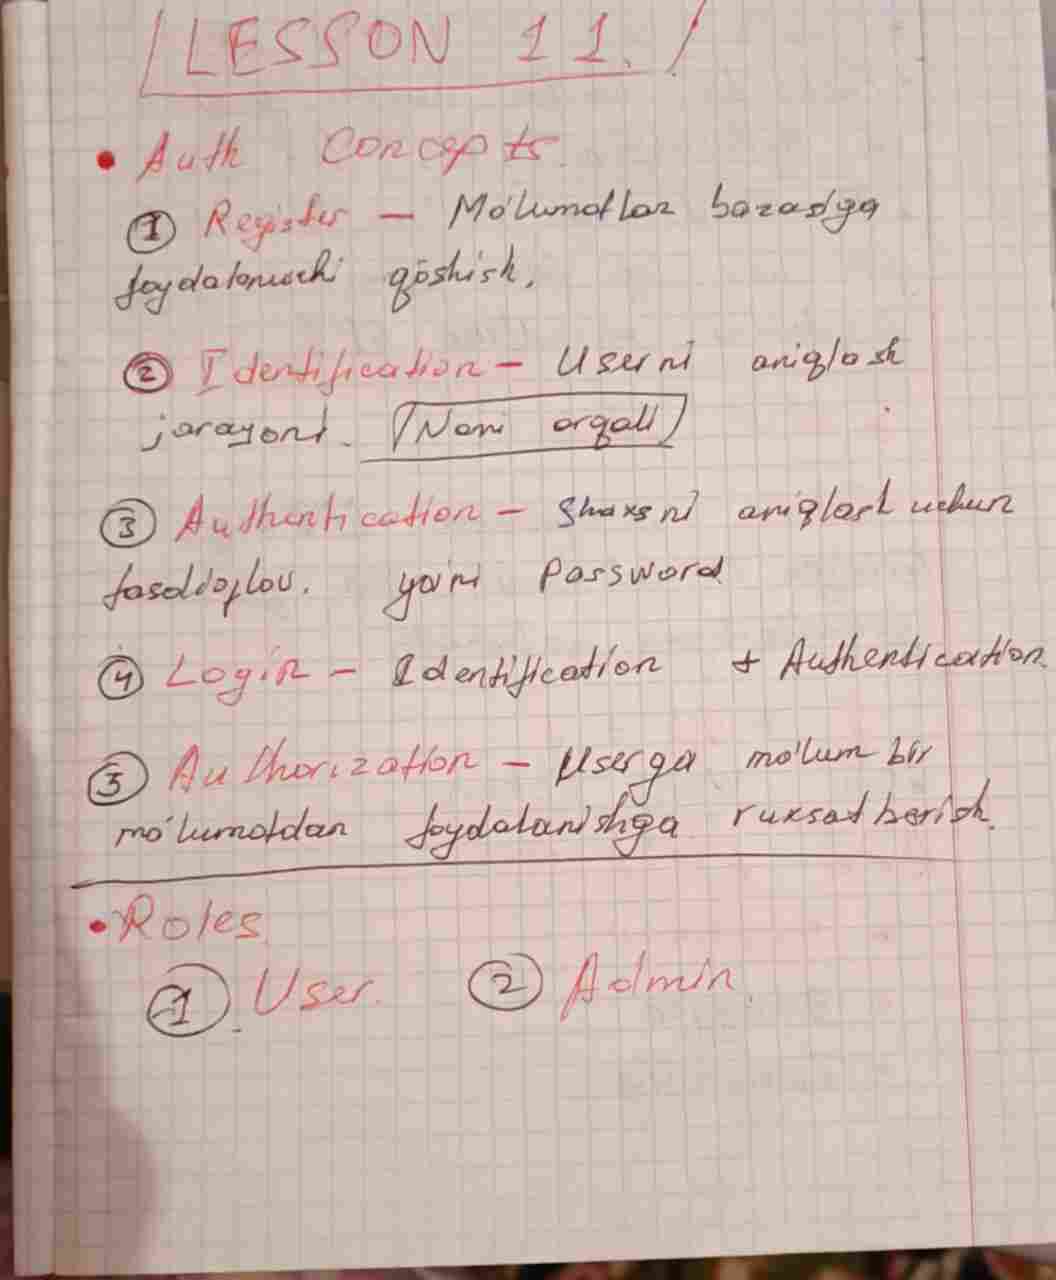 LESSON 11.
• Auth Concepts.
① Register - Ma'lumotlar bazasiga
foydalanuvchi qo'shish.
② Identification - Userni aniqlash
jarayoni. Nomi orqali
③ Authentication - Shaxsni aniqlash uchun
tasdiqlov. ya'ni Password
④ Login - Identification + Authentication.
⑤ Authorization - Userga ma'lum bir
ma'lumotdan foydalanishga ruxsat berish.
• Roles
① User. ② Admin.